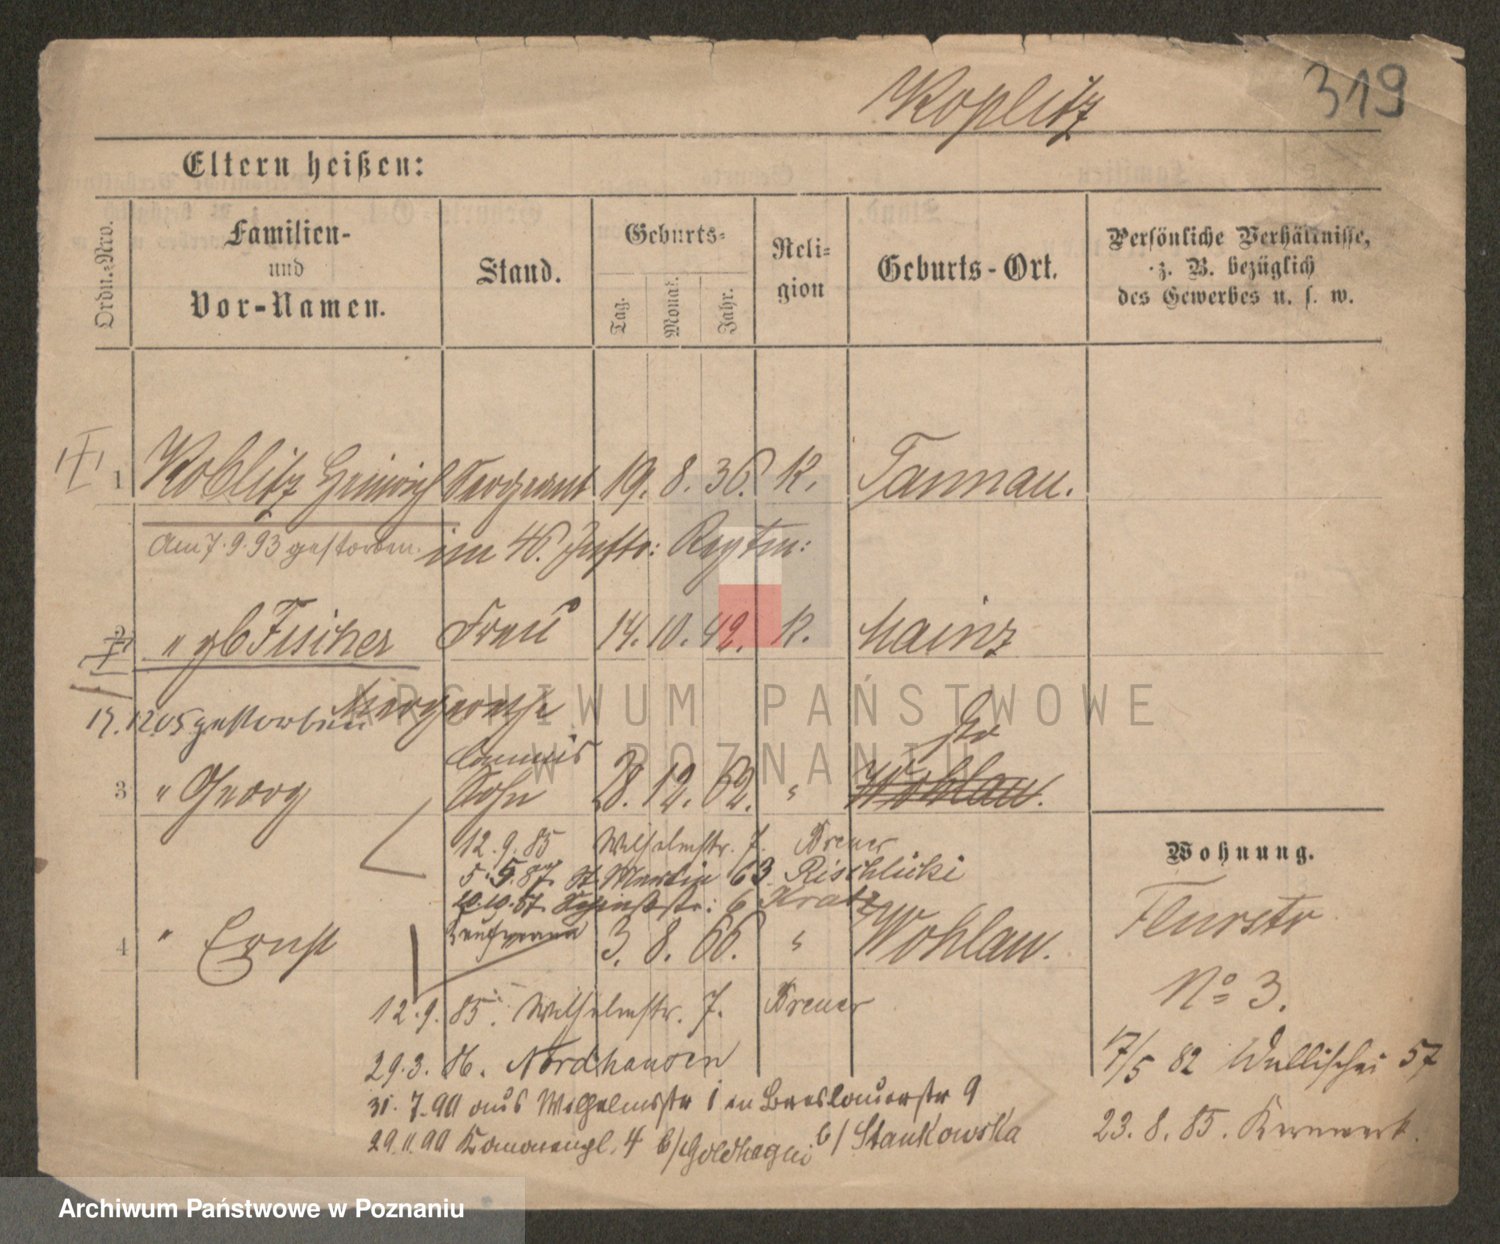 Koplitz 319
Eltern heißen:
Ordn.-Nro.
Familien-
und
Vor-Namen.
Stand.
Geburts-
Tag.
Monat.
Jahr.
Reli-
gion
Geburts-Ort.
Persönliche Verhältnisse,
z. B. bezüglich
des Gewerbes u. s. w.
1 Koblitz Heinrich Sergeant 19. 8. 36. K. Tannau.
Am 7.9.93 gestorben. im 46. Inftr: Regtm:
2 " gb Fischer Frau 14. 10. 42. K. Mainz
17.12.05 gestorben Margarethe
Commis
3 " Georg Sohn 28. 12. 62. " Wohlau.
12. 9. 85 Wilhelmstr. 7. Brener
5. 5. 87. St. Martin 63 Rischlicki
6 Kratz
Wohnung.
4 " Ernst Kaufmann 3. 8. 66. " Wohlau.
Flurstr
No 3.
12. 9. 85. Wilhelmstr. 7. Brener
29. 3. 86. Nordhausen
17/5 82 Wallischei 57
31. 7. 90 aus Wilhelmsstr 1 in Breslauerstr 9
23. 8. 85. Kernwerk.
29. 11. 90 4 b/ Goldhagen b/ Stankowska
ARCHIWUM PAŃSTWOWE
W POZNANIU
Archiwum Państwowe w Poznaniu